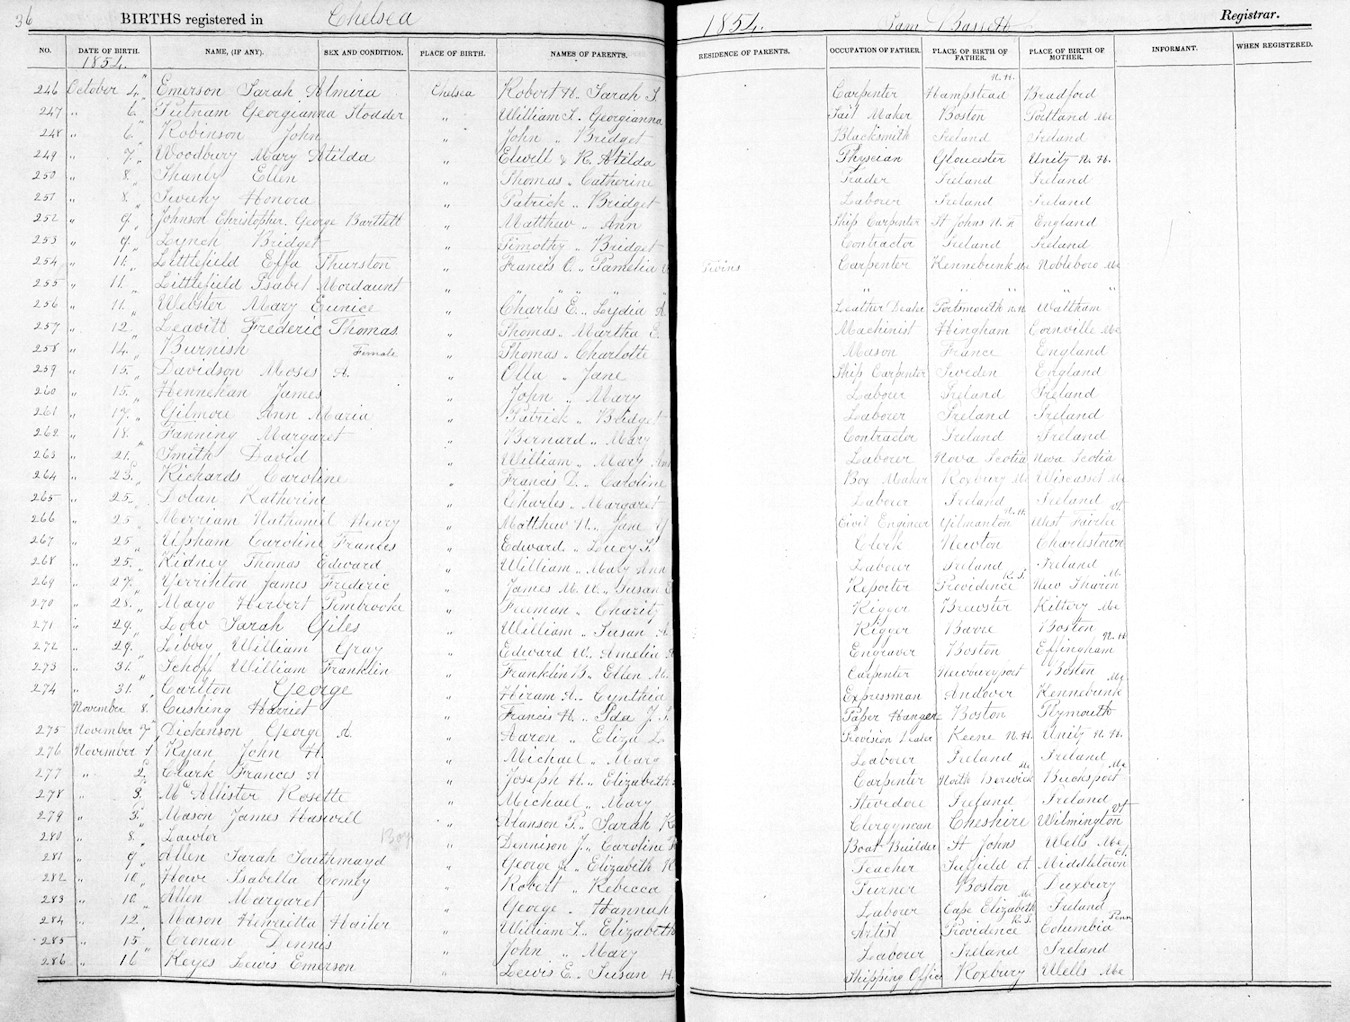 36 BIRTHS registered in Chelsea 1854. Sam Bassett Registrar.
NO. DATE OF BIRTH. NAME, (IF ANY). SEX AND CONDITION. PLACE OF BIRTH. NAMES OF PARENTS. RESIDENCE OF PARENTS. OCCUPATION OF FATHER. PLACE OF BIRTH OF FATHER. PLACE OF BIRTH OF MOTHER. INFORMANT. WHEN REGISTERED.
1854.
246 October 4 Emerson Sarah Almira Chelsea Robert H. Sarah T. Carpenter Hampstead N.H. Bradford
247 " 6 Putnam Georgianna Stodder " William T. Georgianna Sail Maker Boston Portland Me
248 " 6 Robinson John " John " Bridget Blacksmith Ireland Ireland
249 " 7 Woodbury Mary Atilda " Elwell & R. Atilda Physcian Gloucester Unity N. H.
250 " 8 Ellen " Thomas " Catherine Trader Ireland Ireland
251 " 8 Honora " Patrick " Bridget Laborer Ireland Ireland
252 " 9 Johnson Christopher George Bartlett " Matthew " Ann Ship Carpenter St Johns England
253 " 9 Lynch Bridget " Timothy " Bridget Contractor Ireland Ireland
254 " 11 Littlefield Ella Thurston " Francis O. " Pamelia Twins Carpenter Kennebunk Me Nobleboro Me
255 " 11 Littlefield Isabel Mordaunt " " " " " " "
256 " 11 Webster Mary Eunice " Charles E. " Lydia A. Leather Dealer Portsmouth N.H Waltham
257 " 12 Leavitt Frederic Thomas " Thomas " Martha Machinist Hingham Cornville Me
258 " 14 Burnish Female " Thomas " Charlotte Mason France England
259 " 15 Davidson Moses A. " Olla " Jane Ship Carpenter Sweden England
260 " 15 Hennehan James " John " Mary Labour Ireland Ireland
261 " 17 Gilmore Ann Maria " Patrick " Bridget Laborer Ireland Ireland
262 " 18 Fanning Margaret " Bernard " Mary Contractor Ireland Ireland
263 " 21 Smith David " William " Mary Ann Laborer Nova Scotia Nova Scotia
264 " 23 Richards Caroline " Francis D. " Caroline Box Maker Roxbury Wiscasset Me
265 " 25 Dolan Katherine " Charles " Margaret Laborer Ireland Ireland
266 " 25 Merriam Nathaniel Henry " Matthew H. " Jane Civil Engineer Gilmanton N.H. West Fairlee Vt
267 " 25 Upham Caroline Frances " Edward " Lucy Clerk Newton Charlestown
268 " 25 Kidney Thomas Edward " William " Mary Ann Laborer Ireland Ireland
269 " 27 Yerrinton James Frederic " James M. W. " Susan Reporter Providence R. I. New Sharon Me
270 " 28 Mayo Herbert Pembrooke " Freeman " Charity Rigger Brewster Kittery Me
271 " 29 Low Sarah Giles " William " Susan A Rigger Barre Boston
272 " 29 Libby William Gray " Edward W. Amelia Engraver Boston Effingham N. H
273 " 31 Schoff William Franklin " Franklin B. Ellen M. Carpenter Newburyport Boston
274 " 31 Carlton George " Hiram A. " Cynthia Expressman Andover Kennebunk Me
November 8 Cushing Harriet " Francis H. " Ida J. Paper Hanger Boston Plymouth
275 November 7 Dickinson George A. " Aaron " Eliza L Provision Dealer Keene N. H. Unity N. H.
276 November 1 Ryan John H. " Michael " Mary Laborer Ireland Ireland
277 " 2 Clark Frances A " Joseph H. " Elizabeth Carpenter North Berwick Me Bucksport Me
278 " 3 McAllister Rosette " Michael " Mary Stevedore Ireland Ireland
279 " 3 Mason James Haswell " Manson P. " Sarah Clergyman Cheshire Wilmington Vt
280 " 8 Lawlor Boy " Dennison J. " Caroline Boat Builder St Johns Wells Me
281 " 9 Allen Sarah Southmayd " George " Elizabeth Teacher Ct. Middletown Ct.
282 " 10 Howe Isabella Comey " Robert " Rebecca Turner Boston Duxbury
283 " 10 Allen Margaret " George " Hannah Laborer Cape Elizabeth Me Ireland
284 " 12 Mason Henrietta " William T. " Elizabeth Artist Providence R. I. Columbia Penn
285 " 15 Cronan Dennis " John " Mary Laborer Ireland Ireland
286 " 16 Keyes Lewis Emerson " Lewis E. " Susan H. Shipping Offic Roxbury Wells Me